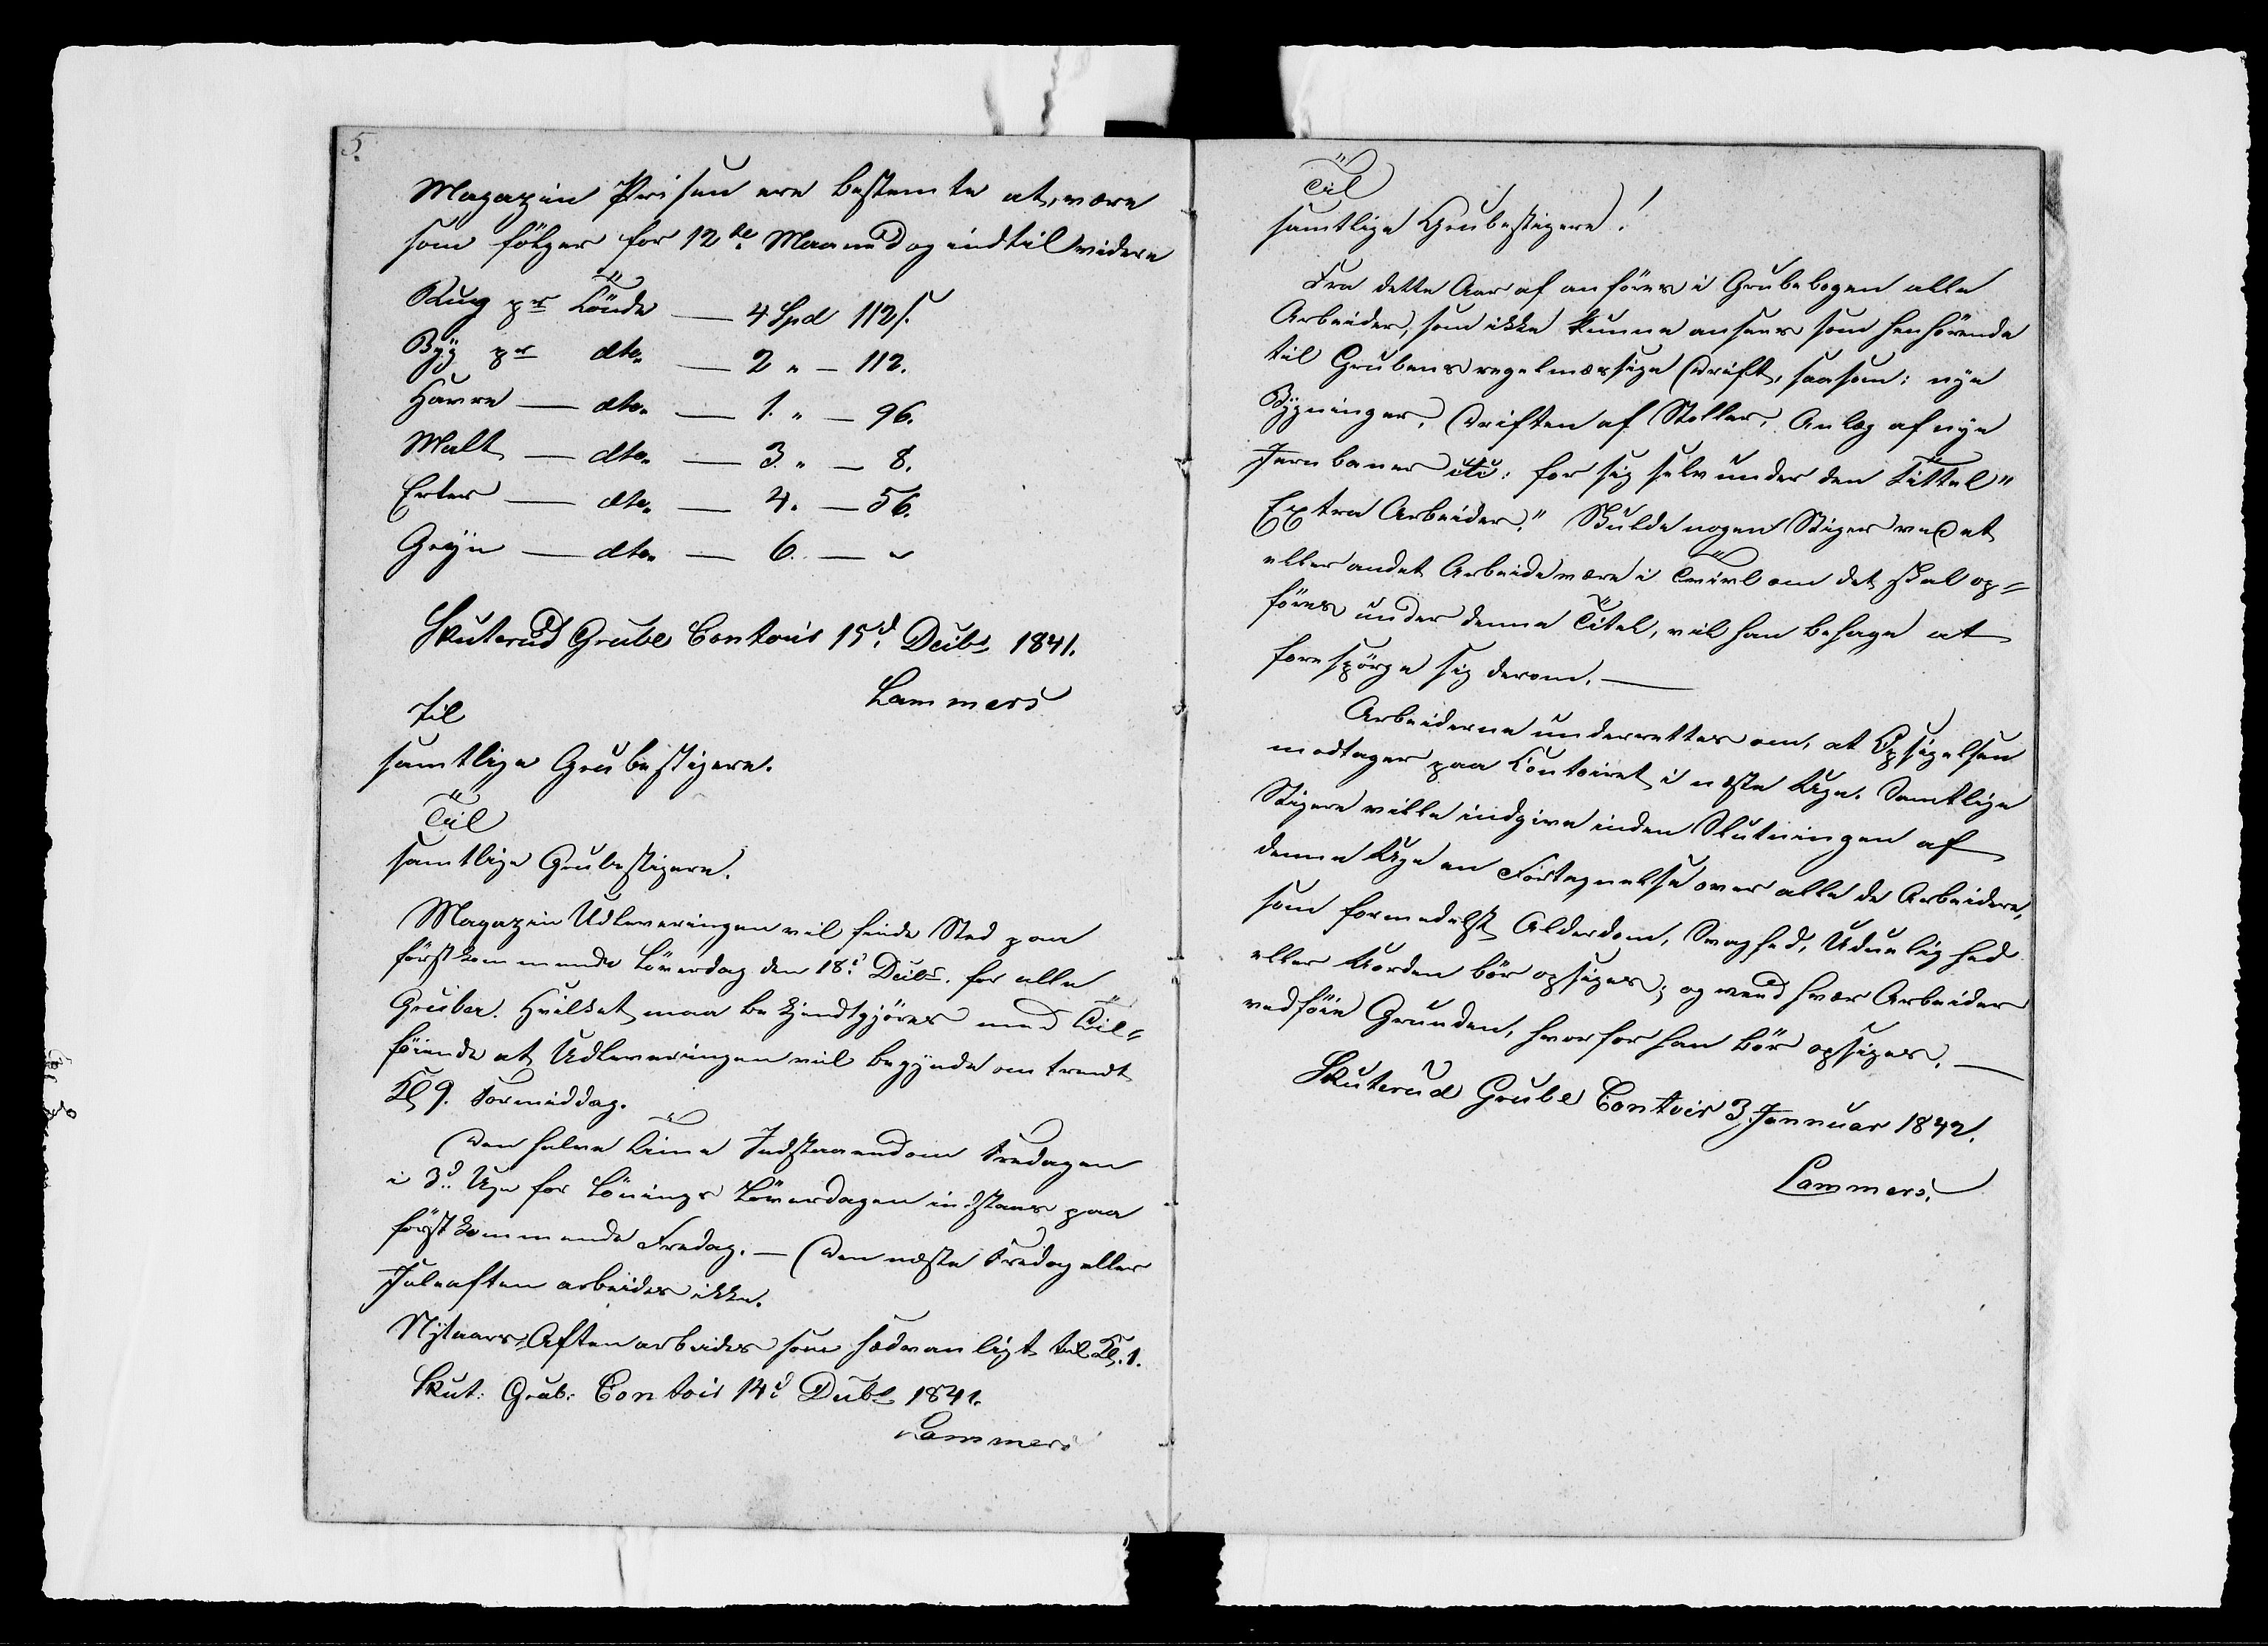 5.
Magazin Prisen ere bestemte at være
som følger for 12te Maaned og indtil videre
Rug pr Tönde — 4 Spd 112 s.
Byg pr dto. — 2 " — 112.
Havre — dto. — 1. " — 96.
Malt — dto. — 3. " — 8.
Erter — dto. — 4. — 56.
Gryn — dto. — 6. — "
Skuterud Grube Contoir 15d. Decbr 1841.
Lammers
Til
samtlige Grubestigere.
Til
samtlige Grubestigere.
Magazin Udleveringen vil finde Sted paa
förstkommende Löverdag den 18d. Decbr. for alle
Gruber. Hvilket maa bekjendtgjöres med Til-
föiende at Udleveringen vil begynde omtrendt
Kl 9. Formiddag.
Den halve Time Indstaaendom Fredagen
i 3d. Uge for Lönings Löverdagen indstaaes paa
förstkommende Fredag. — Den næste Fredag eller
Juleaften arbeides ikke.
Nytaars Aften arbeides som sædvanligt til Kl. 1.
Skut: Grub: Contoir 14d Decbr 1841.
Lammers
Til
samtlige Grubestigere!
Fra dette Aar af anföres i Grubebogen alle
Arbeider, som ikke kunne ansees som henhörende
til Grubens regelmæssige Drift, saasom: nye
Bygninger, Driften af Stoller, Anlæg af nye
Jernbaner etc: for sig selv under den Tittel "
Extra Arbeider." Skulde nogen Stiger ved et
eller andet Arbeide være i Tvivl om det skal op-
föres under denne Titel, vil han behage at
forespörge sig derom. —
Arbeiderne underrettes om, at Opsigelsen
modtages paa Contoiret i næste Uge. Samtlige
Stigere ville indgive inden Slutningen af
denne Uge en Fortegnelse over alle de Arbeidere,
som formedelst Alderdom, Svaghed, Uduelighed
eller Uorden bör opsiges; og ved hver Arbeider
vedföie Grunden, hvorfor han bör opsiges. —
Skuterud Grube Contoir 3 Januar 1842.
Lammers.